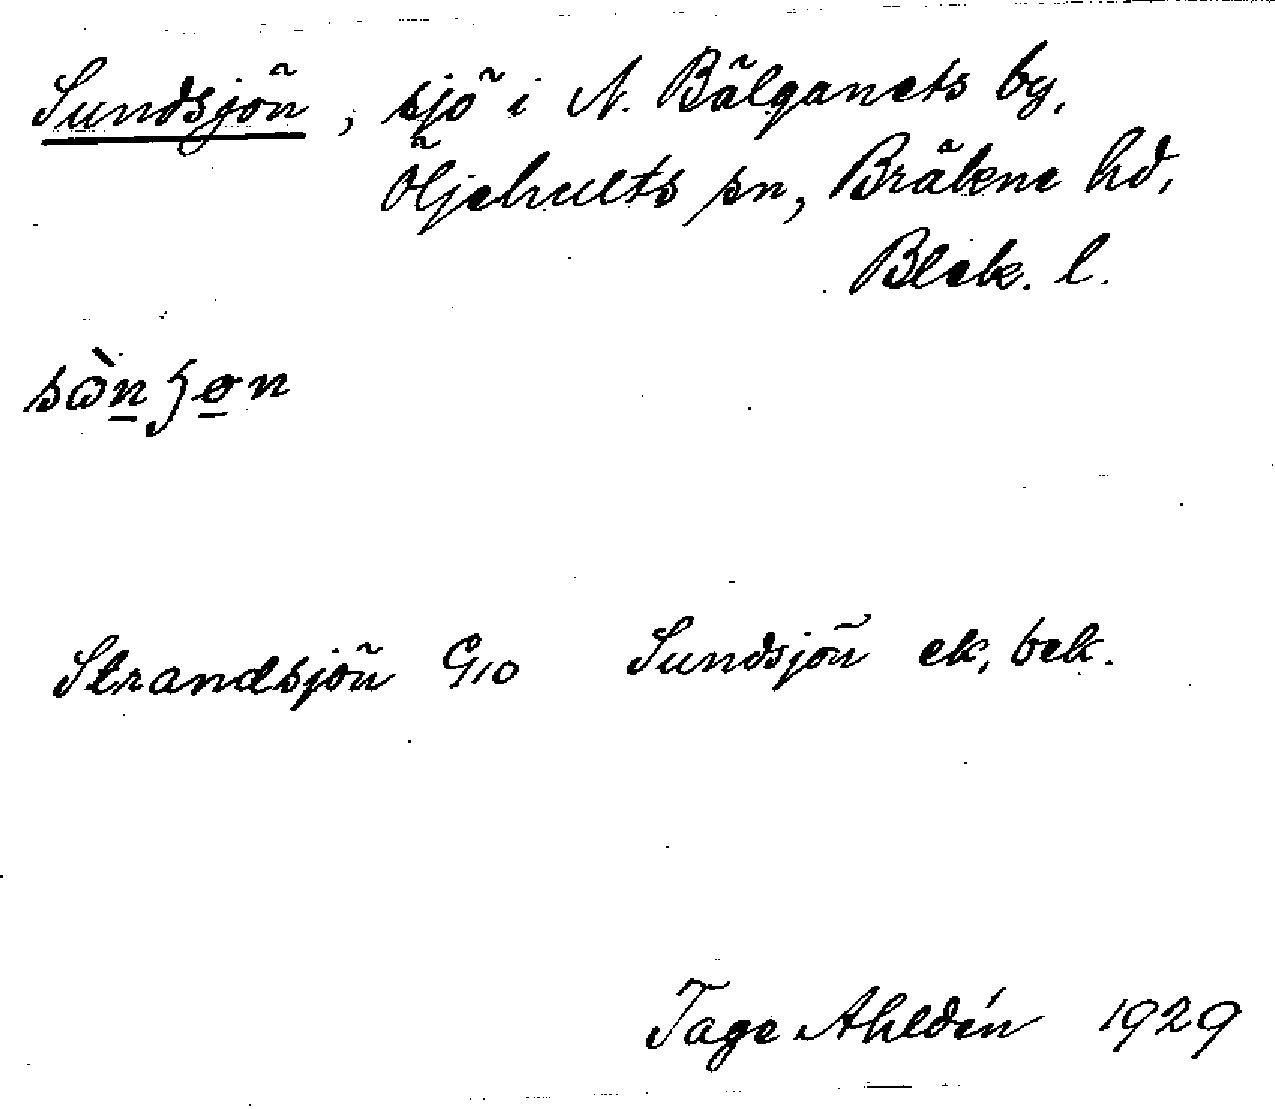 Sundsjön, sjö i N. Bälganets by,
Öljehults sn, Bräkne hd,
Blek. l.
Strandsjön G10 Sundsjön ek, bek.
Tage Ahldén 1929